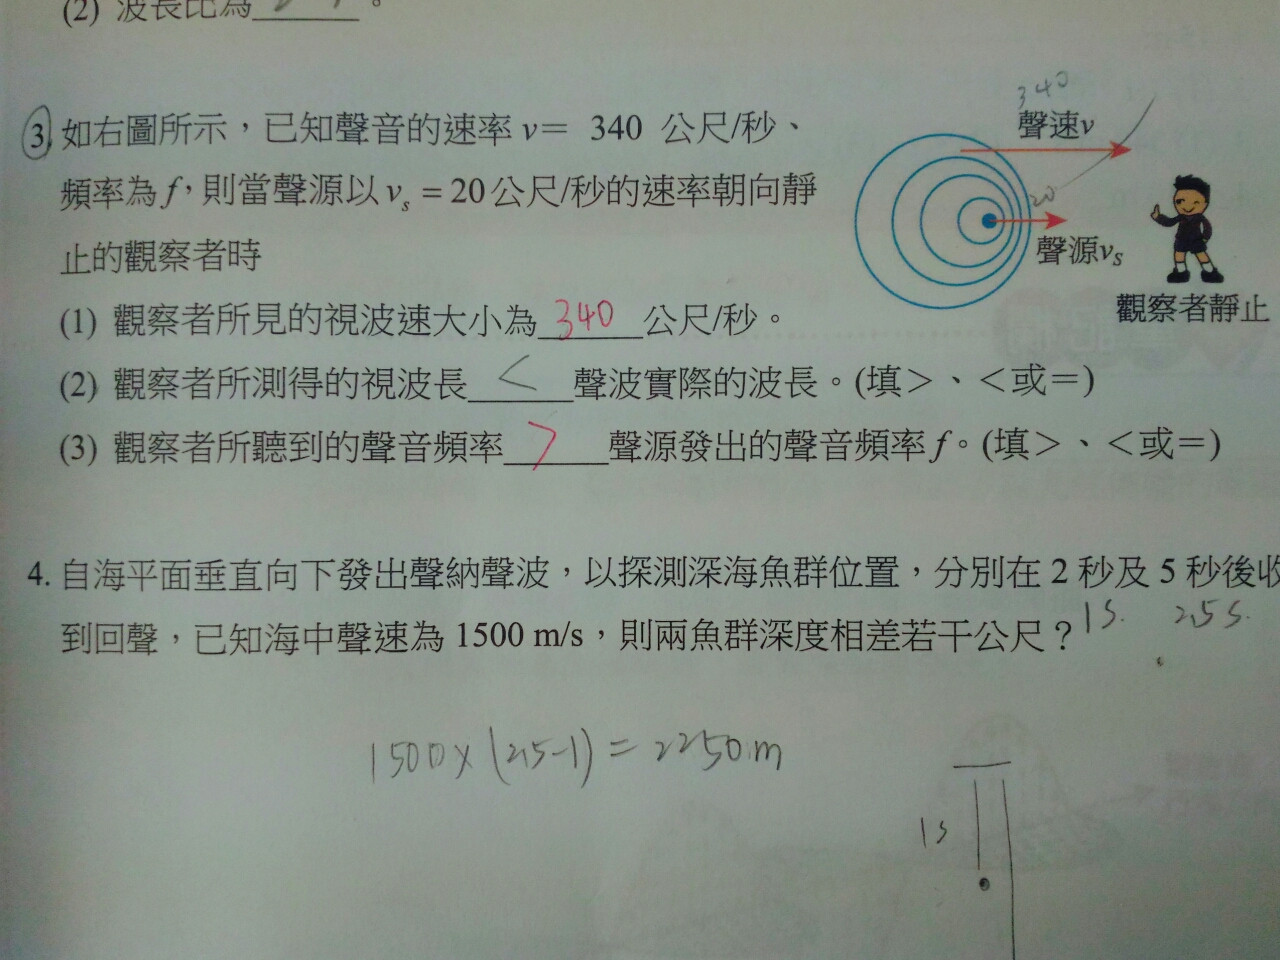 (2) 波長比為
340
聲速v
3. 如右圖所示，已知聲音的速率 v= 340 公尺/秒、
頻率為 f，則當聲源以 vs = 20 公尺/秒的速率朝向靜
20
止的觀察者時
聲源vs
觀察者靜止
(1) 觀察者所見的視波速大小為 340 公尺/秒。
(2) 觀察者所測得的視波長 < 聲波實際的波長。(填＞、＜或＝)
(3) 觀察者所聽到的聲音頻率 > 聲源發出的聲音頻率 f。(填＞、＜或＝)
4. 自海平面垂直向下發出聲納聲波，以探測深海魚群位置，分別在 2 秒及 5 秒後收
到回聲，已知海中聲速為 1500 m/s，則兩魚群深度相差若干公尺？
1s. 2.5s.
1500x(2.5-1)=2250m
1s